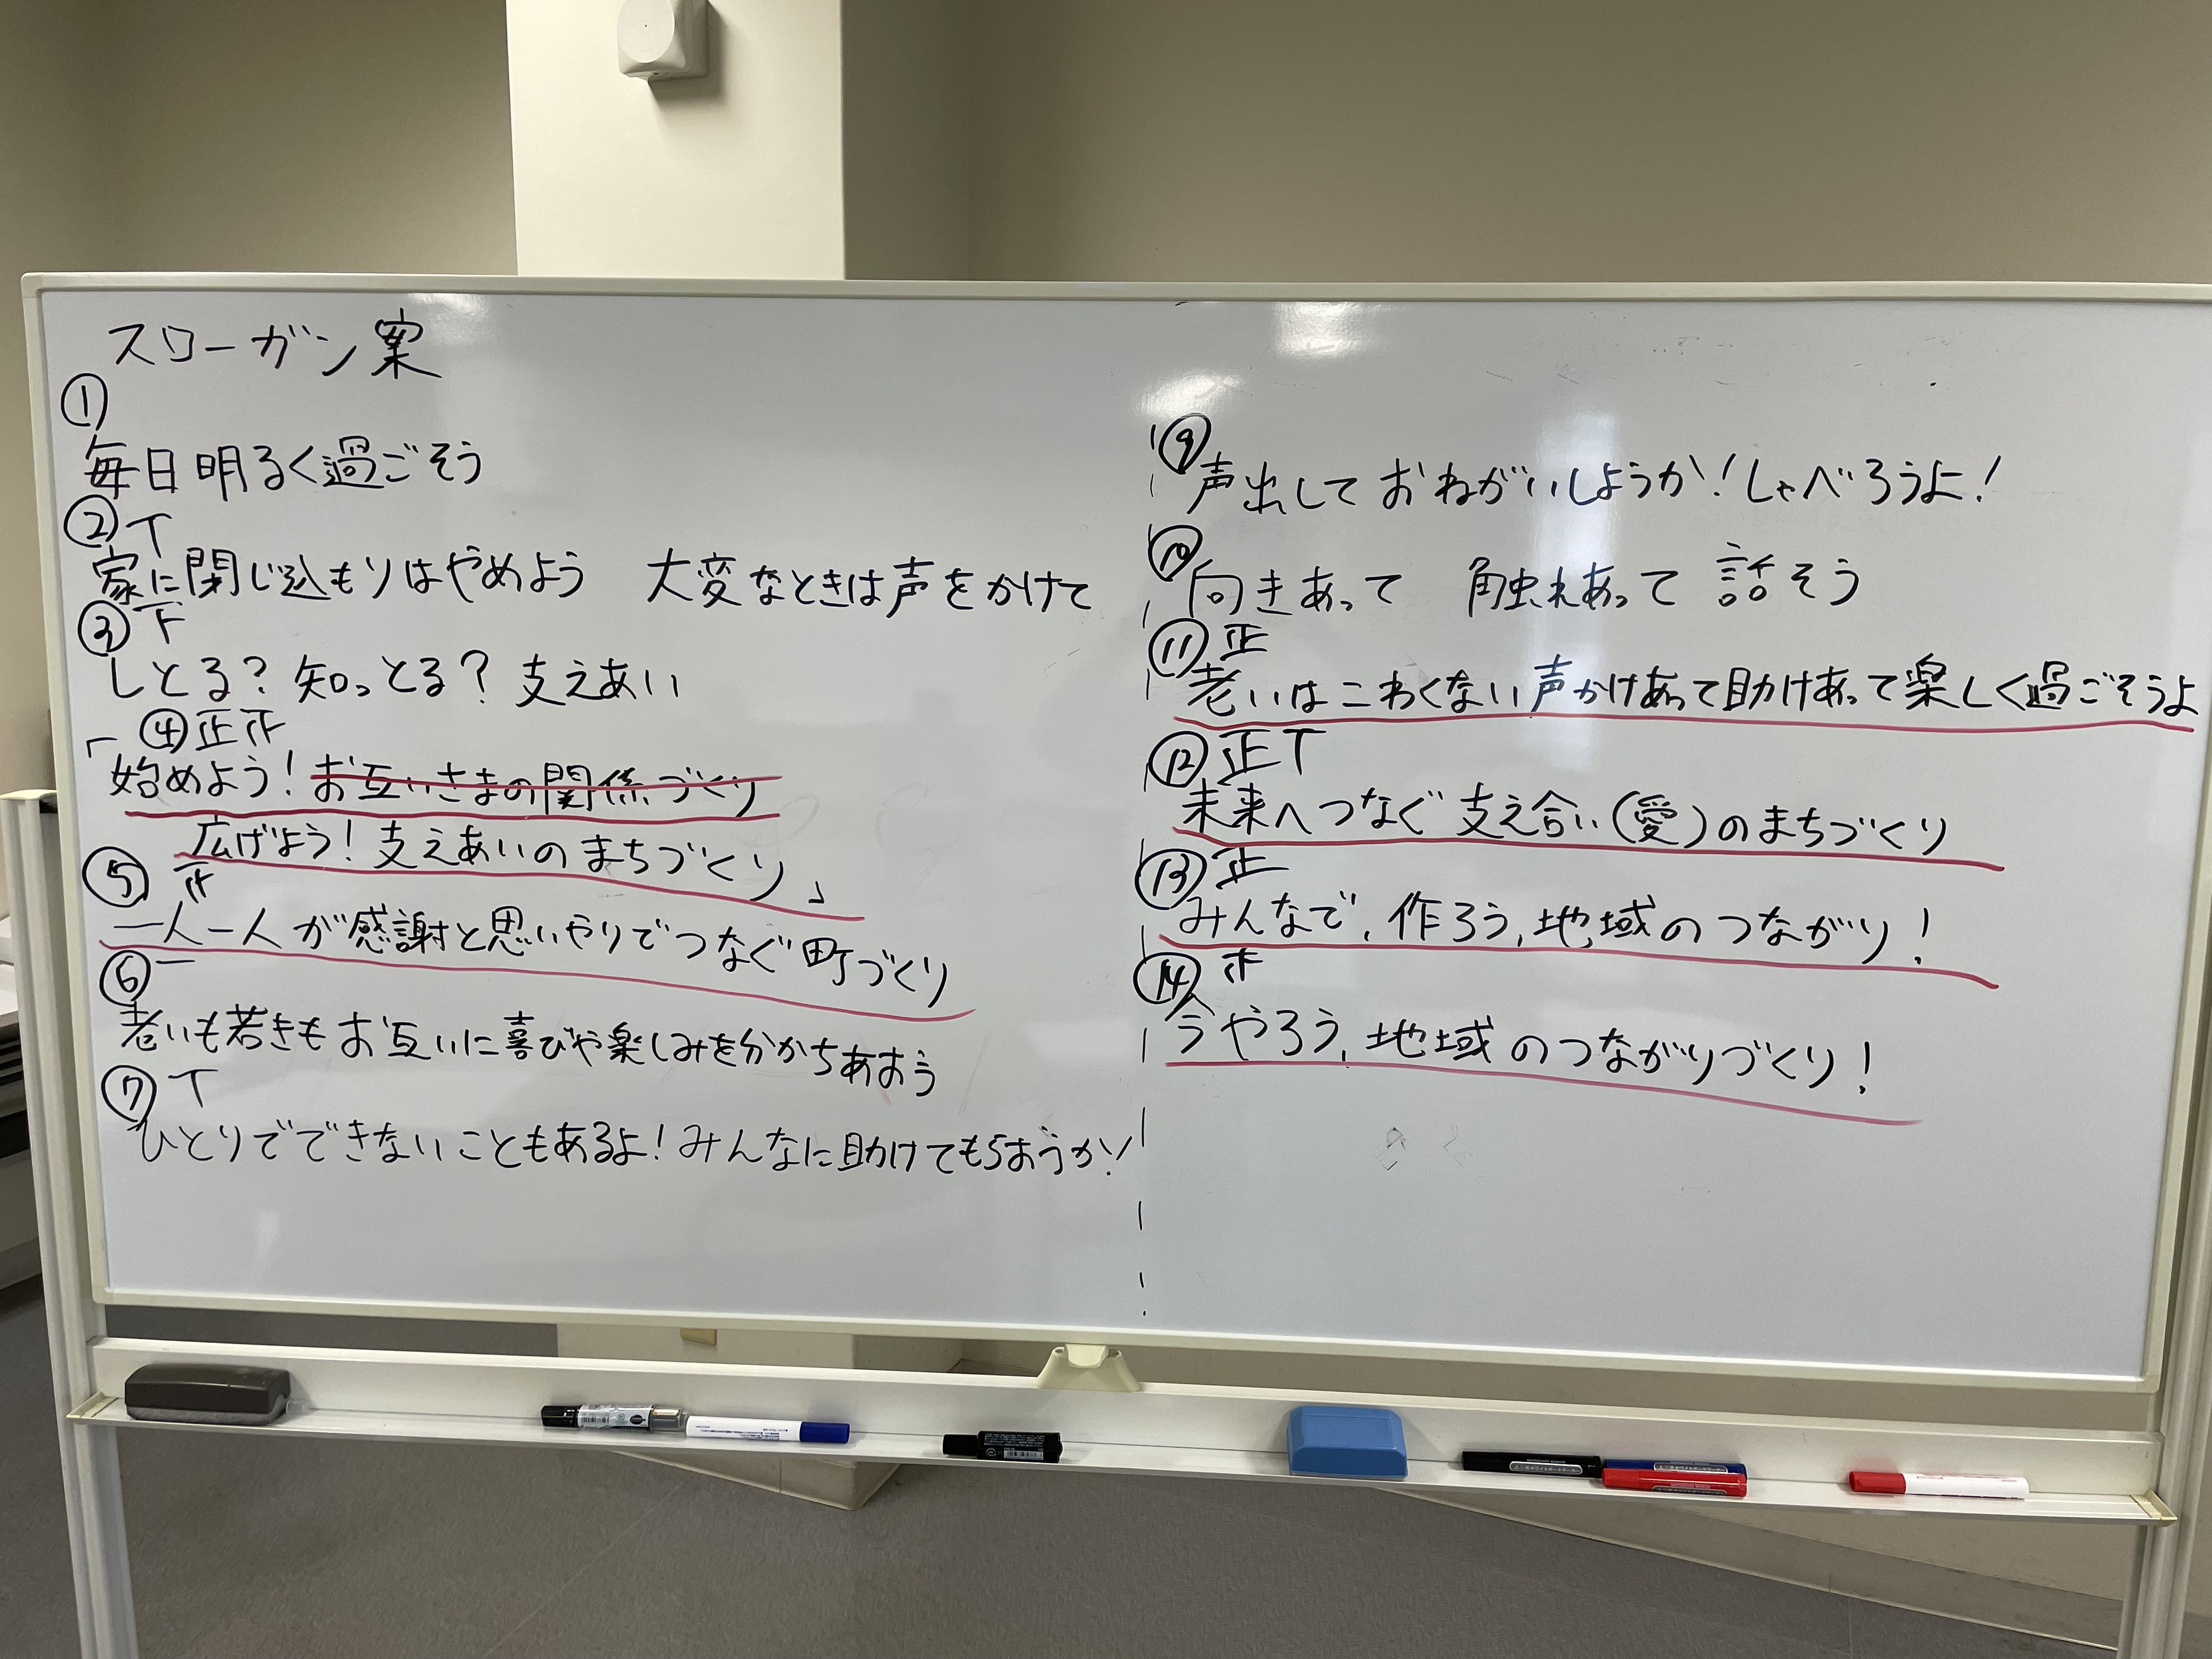 スローガン案
①
毎日明るく過ごそう
② 丅
家に閉じ込もりはやめよう 大変なときは声をかけて
③ 下
しとる？知っとる？支えあい
④ 正正
「始めよう！お互いさまの関係づくり
広げよう！支えあいのまちづくり」
⑤
一人一人が感謝と思いやりでつなぐ町づくり
⑥ 一
老いも若きもお互いに喜びや楽しみを分かちあおう
⑦ 丅
ひとりでできないこともあるよ！みんなに助けてもらおうか！
⑨
声出しておねがいしようか！しゃべろうよ！
⑩
向きあって 触れあって 話そう
⑪ 正
老いはこわくない声かけあって助けあって楽しく過ごそうよ
⑫ 正丅
未来へつなぐ支え合い（愛）のまちづくり
⑬ 正
みんなで、作ろう、地域のつながり！
⑭
今やろう、地域のつながりづくり！